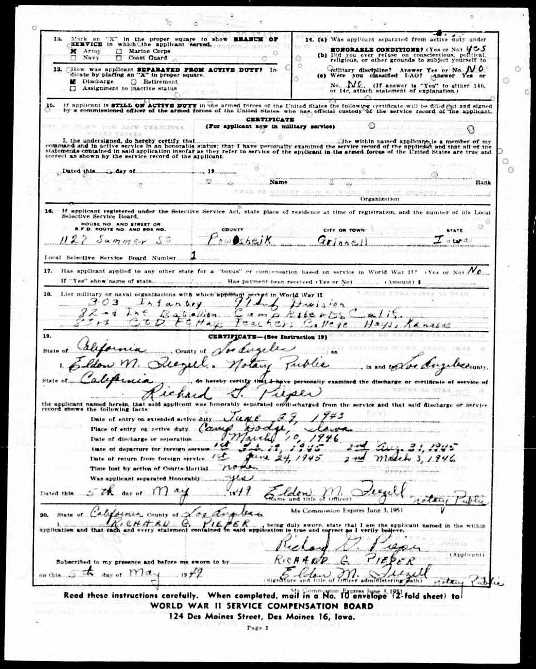 12. Mark an "X" in the proper square to show BRANCH OF
SERVICE in which the applicant served.
Army Marine Corps
Navy Coast Guard
13. How was applicant SEPARATED FROM ACTIVE DUTY? In-
dicate by placing an "X" in proper square.
Discharge Retirement
Assignment to inactive status
14. (a) Was applicant separated from active duty under
HONORABLE CONDITIONS? (Yes or No) Yes
(b) Did you ever refuse on conscientious, political,
religious, or other grounds to subject yourself to
military discipline? Answer Yes or No. No
(c) Were you classified Answer Yes or
No. No (If answer is "Yes" to either 14b,
14c, attach statements of explanation.)
15. If applicant is STILL ON ACTIVE DUTY in the armed forces of the United States the following certificate will be filled out and signed
by a commissioned officer of the armed forces of the United States who has official custody of the service record of the applicant.
CERTIFICATE
(For applicant now in military service)
I, the undersigned, do hereby certify that the within named applicant is a member of my
command and in active service in an honorable status; that I have personally examined the service record of the applicant and that all of the
statements contained in said application insofar as they refer to service of the applicant in the armed forces of the United States are true and
correct as shown by the service record of the applicant.
Dated this day of , 19
Name Rank
Organization
16. If applicant registered under the Selective Service Act, state place of residence at time of registration, and the number of his Local
Selective Service Board.
HOUSE NO. AND STREET OR
R.F.D. ROUTE NO. AND BOX NO. COUNTY CITY OR TOWN STATE
1127 Summer St Powesheik Grinnell Iowa
Local Selective Service Board Number 1
17. Has applicant applied to any other state for a "bonus" or compensation based on service in World War II? (Yes or No) No
If "Yes" show name of state. Has payment been received (Yes or No) (Amount) $
18. List military or naval organizations with which applicant served in World War II
303 Infantry 97 Inf Division
82nd Int Battalion Camp Roberts Calif.
Teachers College Hays, Kansas
19. CERTIFICATE—(See Instruction 19)
State of California, County of Los Angeles, ss
I, Eldon M. Notary Public, in and for Los Angeles County,
State of California, do hereby certify that I have personally examined the discharge or certificate of service of
Richard G. Pieper
the applicant named herein, that said applicant was honorably separated or discharged from the service and that said discharge or service
record shows the following facts:
Date of entry on extended active duty June 29, 1943
Place of entry on active duty Camp Dodge, Iowa
Date of discharge or separation March 10, 1946
Date of departure for foreign service 1st Feb 19, 1945 2nd Aug. 31, 1945
Date of return from foreign service 1st June 24, 1945 2nd March 3, 1946
Time lost by action of Courts-Martial none
Was applicant separated Honorably yes
Dated this 5th day of May 1949 Eldon M. Notary Public
Name and title of Officer
My Commission Expires June 3, 1951
20. State of California, County of Los Angeles
I, RICHARD G. PIEPER, being duly sworn, state that I am the applicant named in the within
application and that each and every statement contained in said application is true and correct as I verily believe.
Richard G. Pieper
RICHARD G PIEPER (Applicant)
Subscribed to my presence and before me sworn to by
on this 5th day of May 1949 Eldon M. notary Public
(Signature and title of officer administering oath)
My Commission Expires June 3, 1951
Read these instructions carefully. When completed, mail in a No. 10 envelope (2-fold sheet) to
WORLD WAR II SERVICE COMPENSATION BOARD
124 Des Moines Street, Des Moines 16, Iowa.
Page 2